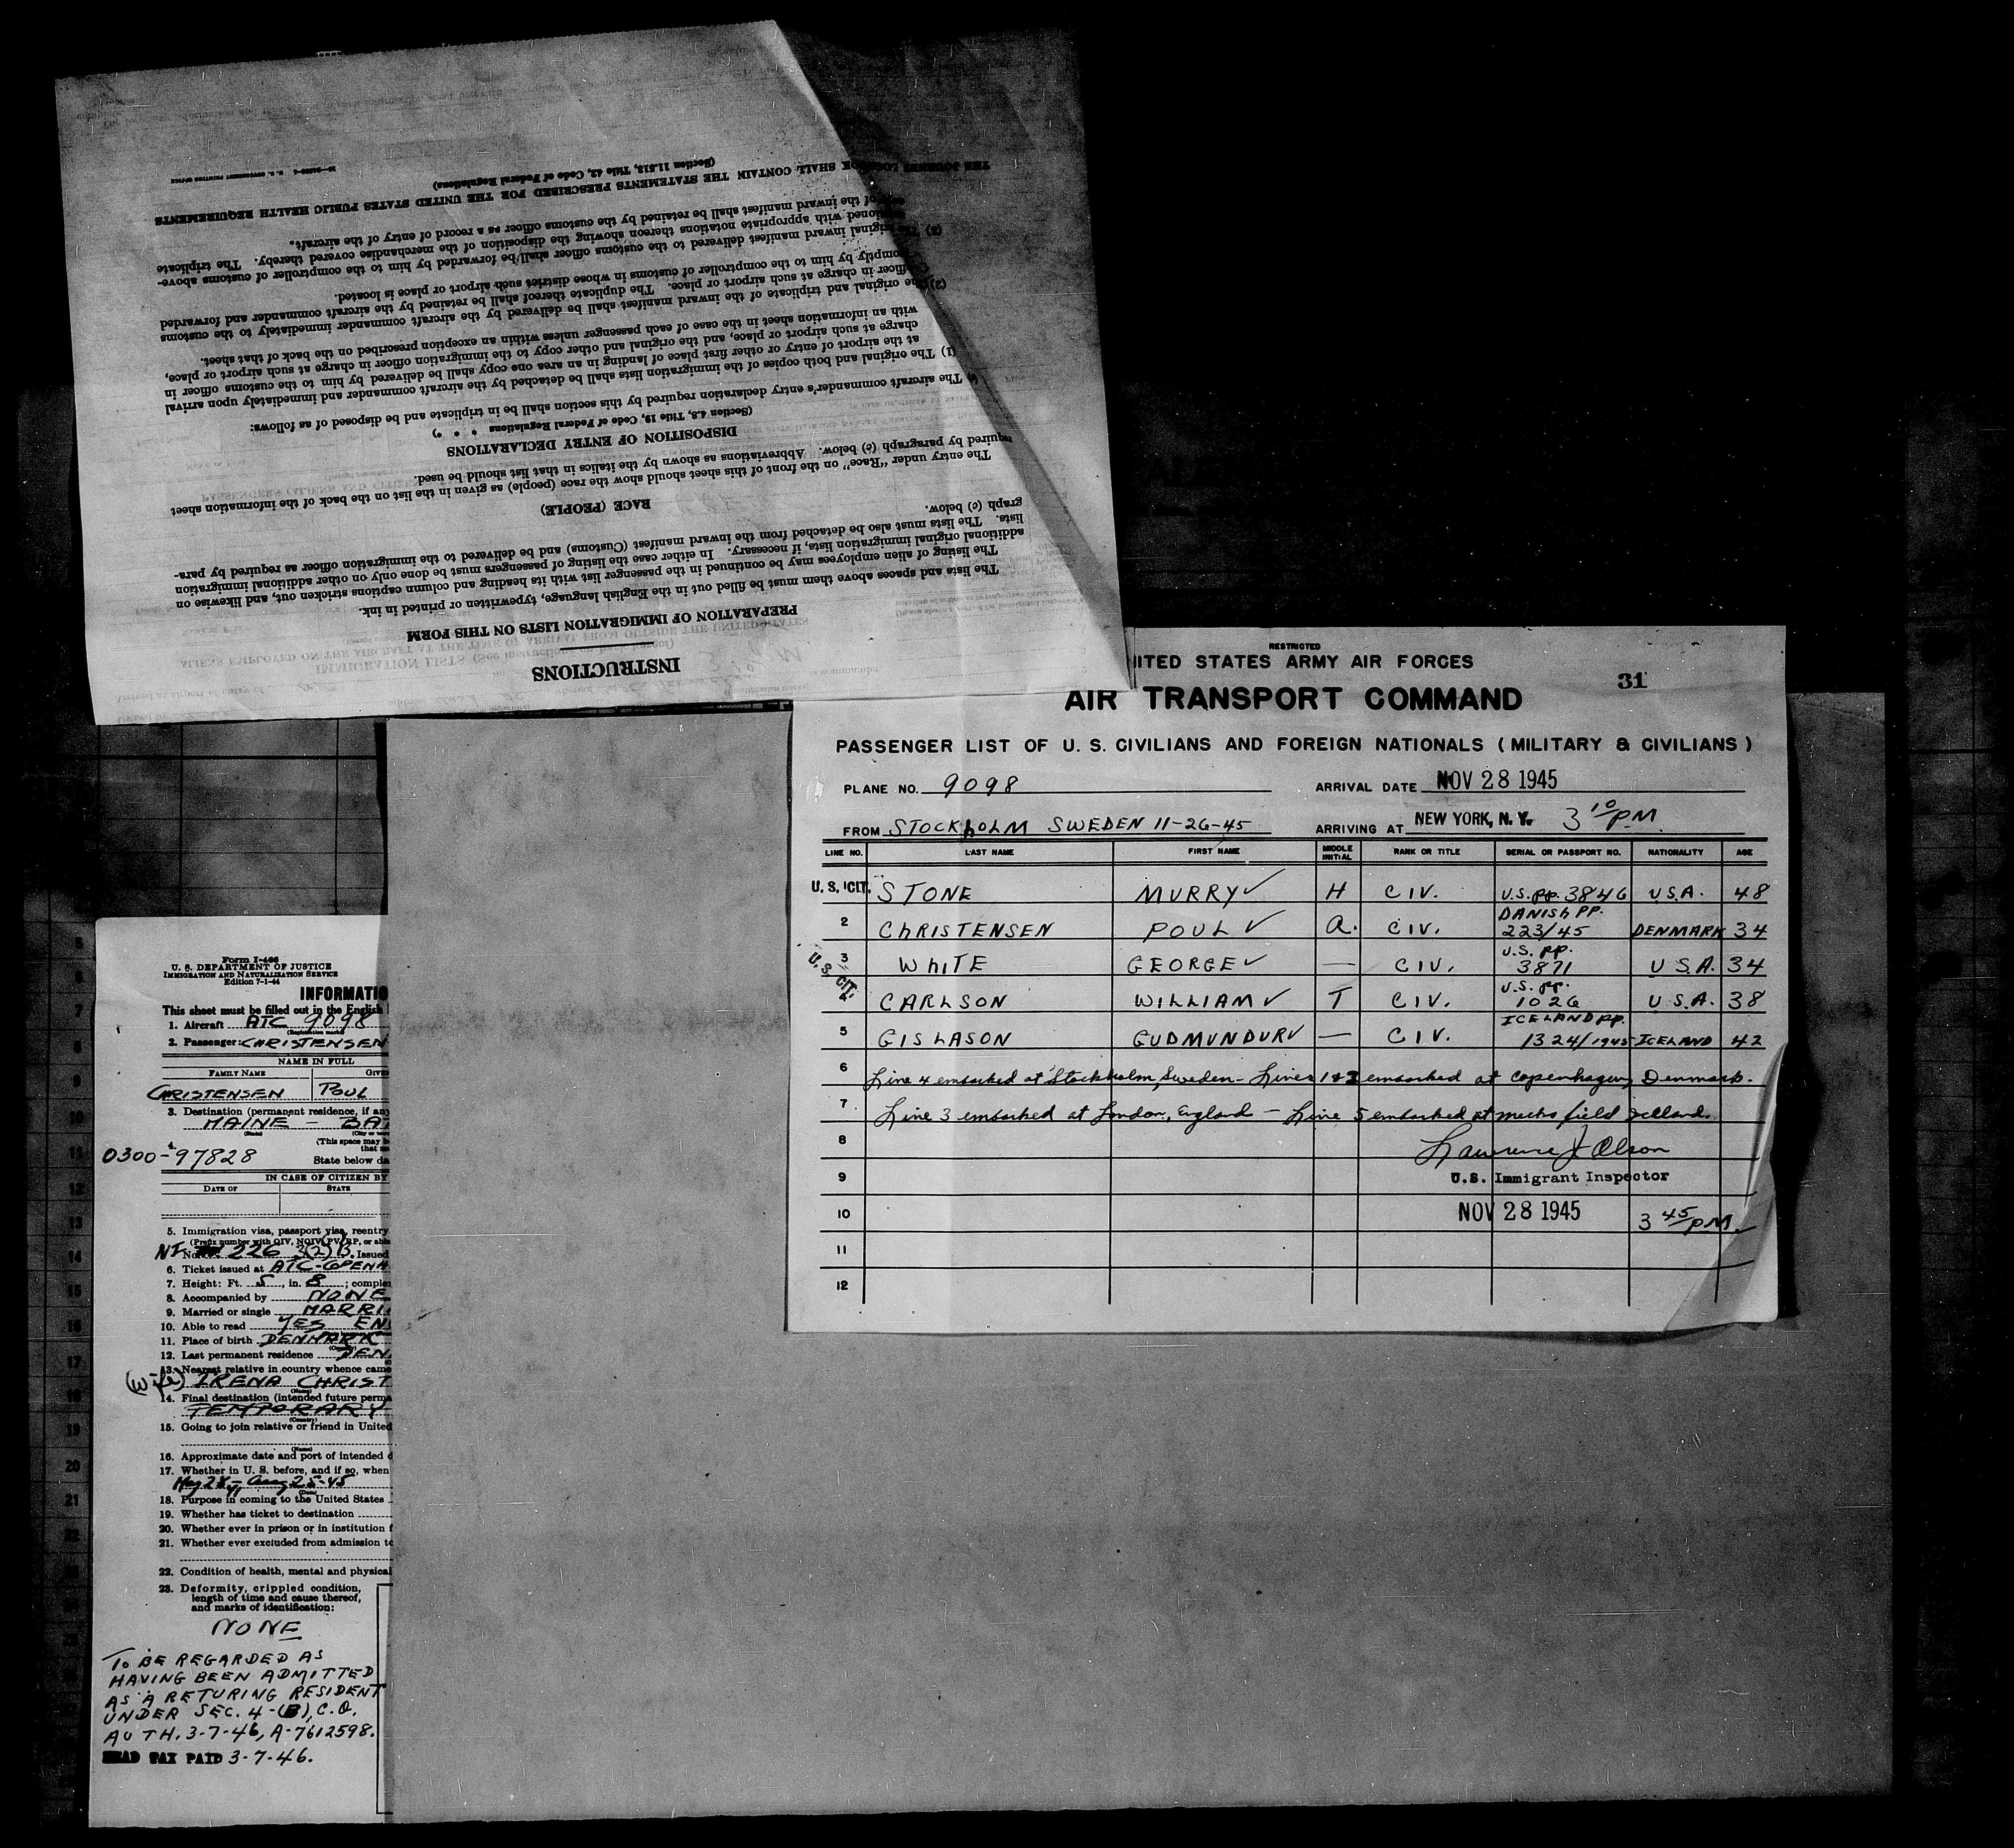 INSTRUCTIONS
PREPARATION OF IMMIGRATION LISTS ON THIS FORM
The lists and spaces above them must be filled out in the English language, typewritten or printed in ink.
The listing of alien employees may be continued in the passenger list with its heading and column captions stricken out, and likewise on
additional original immigration lists, if necessary. In either case the listing of passengers must be done only on other additional immigration
lists. The lists must also be detached from the inward manifest (Customs) and be delivered to the immigration officer as required by para-
graph (c) below.
RACE (PEOPLE)
The entry under "Race" on the front of this sheet should show the race (people) as given in the list on the back of the information sheet
required by paragraph (c) below. Abbreviations as shown by the italics in that list should be used.
DISPOSITION OF ENTRY DECLARATIONS
(Section 4.8, Title 19, Code of Federal Regulations * * *)
The aircraft commander's entry declaration required by this section shall be in triplicate and be disposed of as follows:
(1) The original and both copies of the immigration lists shall be detached by the aircraft commander and immediately upon arrival
at the airport of entry or other first place of landing in an area one copy shall be delivered by him to the customs officer in
charge at such airport or place, and the original and other copy to the immigration officer in charge at such airport or place,
with an information sheet in the case of each passenger unless within an exception prescribed on the back of that sheet.
(2) The original and triplicate of the inward manifest shall be delivered by the aircraft commander immediately to the customs
officer in charge at such airport or place. The duplicate thereof shall be retained by the aircraft commander and forwarded
promptly by him to the comptroller of customs in whose district such airport or place is located.
(3) The original inward manifest delivered to the customs officer shall be forwarded by him to the comptroller of customs above-
mentioned with appropriate notations thereon showing the disposition of the merchandise covered thereby. The triplicate
of the inward manifest shall be retained by the customs officer as a record of entry of the aircraft.
THE JOURNEY LOG BOOK SHALL CONTAIN THE STATEMENTS PRESCRIBED FOR THE UNITED STATES PUBLIC HEALTH REQUIREMENTS
(Section 11.513, Title 42, Code of Federal Regulations)
U. S. GOVERNMENT PRINTING OFFICE
RESTRICTED
ITED STATES ARMY AIR FORCES
31
AIR TRANSPORT COMMAND
PASSENGER LIST OF U. S. CIVILIANS AND FOREIGN NATIONALS (MILITARY & CIVILIANS)
PLANE NO. 9098 ARRIVAL DATE NOV 28 1945
FROM STOCKHOLM SWEDEN 11-26-45 ARRIVING AT NEW YORK, N. Y. 3 10/PM
LINE NO. LAST NAME FIRST NAME MIDDLE INITIAL RANK OR TITLE SERIAL OR PASSPORT NO. NATIONALITY AGE
U. S. CIT. STONE MURRY ✓ H CIV. U.S. pp. 3846 U.S.A. 48
2 CHRISTENSEN POUL ✓ A. CIV. DANISH PP. 223/45 DENMARK 34
3 WHITE GEORGE ✓ — CIV. U.S. pp. 3871 U.S.A. 34
U. S. CIT.
4 CARLSON WILLIAM ✓ T CIV. U.S. pp. 1026 U.S.A. 38
5 GISLASON GUDMUNDUR ✓ — CIV. ICELAND PP. 1324/1945 ICELAND 42
6 Line 4 embarked at Stockholm, Sweden - Lines 1 & 2 embarked at Copenhagen, Denmark.
7 Line 3 embarked at London, England - Line 5 embarked at Meeks field Iceland.
8 Lawrence J Olson
9 U.S. Immigrant Inspector
10 NOV 28 1945 3 45/PM.
11
12
Form I-466
U. S. DEPARTMENT OF JUSTICE
IMMIGRATION AND NATURALIZATION SERVICE
Edition 7-1-44
INFORMATIO
This sheet must be filled out in the English
1. Aircraft ATC 9098
(Registration marks)
2. Passenger: CHRISTENSEN
NAME IN FULL
FAMILY NAME GIVE
CHRISTENSEN POUL
3. Destination (permanent residence, if any
MAINE - BAT
(State) (City or tow
4. (This space may b
that m
0300-97828 State below da
IN CASE OF CITIZEN BY
DATE OF STATE
5. Immigration visa, passport visa, reentry
(Prefix number with QIV, NQIV, PV, RP, or abb
NI No. 226 3(2) B. Issued
6. Ticket issued at ATC-COPENH
7. Height: Ft. 5, in. 8; comple
8. Accompanied by NONE
9. Married or single MARRI
10. Able to read YES EN
11. Place of birth DENMARK
(Country)
12. Last permanent residence DEN
13. Nearest relative in country whence came
(wife) IRENA CHRIST
(Name)
14. Final destination (intended future perma
TEMPORARY
(Country)
15. Going to join relative or friend in United
(Name)
16. Approximate date and port of intended d
17. Whether in U. S. before, and if so, when
May 28-41 Aug 25-45
(Date)
18. Purpose in coming to the United States
19. Whether has ticket to destination
20. Whether ever in prison or in institution f
21. Whether ever excluded from admission to
22. Condition of health, mental and physical
23. Deformity, crippled condition,
length of time and cause thereof,
and marks of identification:
NONE
TO BE REGARDED AS
HAVING BEEN ADMITTED
AS A RETURING RESIDENT
UNDER SEC. 4-(B), C.O.
AUTH. 3-7-46, A-7612598.
HEAD TAX PAID 3-7-46.
5
6
7
8
9
10
11
12
13
14
15
16
17
18
19
20
21
22